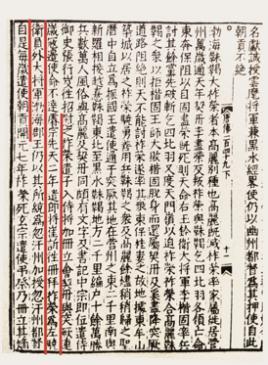 名獻誠授雲麾將軍兼黑水經略使仍以幽州都督為其押使自此
朝貢不絕
渤海靺鞨大祚榮者本高麗別種也高麗既滅祚榮率家屬徙居營
州萬歲通天年契丹李盡榮反叛祚榮與靺鞨乞四比羽各領亡命
東奔保阻以自固盡榮既死則天命右玉鈐衛大將軍李楷固率兵
討其餘黨先破斬乞四比羽又度天門嶺以迫祚榮祚榮合高麗靺
鞨之衆以拒楷固王師大敗楷固脫身而還屬契丹及奚盡降突厥
唐傳一百四十九下 十一
道路阻絕則天不能討祚榮遂率其衆東保桂婁之故地據東牟山
築城以居之祚榮驍勇善用兵靺鞨之衆及高麗餘燼稍稍歸之聖
曆中自立為振國王遣使通于突厥其地在營州之東二千里南與
新羅相接越熹靺鞨東北至黑水靺鞨地方二千里編戶十餘萬勝
兵數萬人風俗與高麗及契丹同頗有文字及書記中宗即位遣侍
御史張行岌往招慰之祚榮遣子入侍將加冊立會契丹與突厥連
歲寇邊使命不達睿宗先天二年遣郎將崔訢往冊拜祚榮為左驍
衛員外大將軍渤海郡王仍以其所統為忽汗州加授忽汗州都督
自是每歲遣使朝貢開元七年祚榮死玄宗遣使弔祭乃冊立其嫡